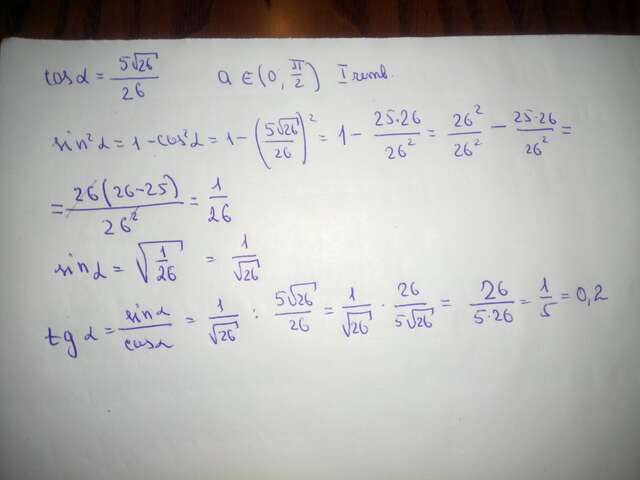 cosα = 5√26/26 a ∈ (0; π/2) I четв.
sin²α = 1 - cos²α = 1 - (5√26/26)² = 1 - 25·26/26² = 26²/26² - 25·26/26² =
= 26(26-25)/26² = 1/26
sinα = √(1/26) = 1/√26
tgα = sinα/cosα = 1/√26 : 5√26/26 = 1/√26 · 26/5√26 = 26/5·26 = 1/5 = 0,2